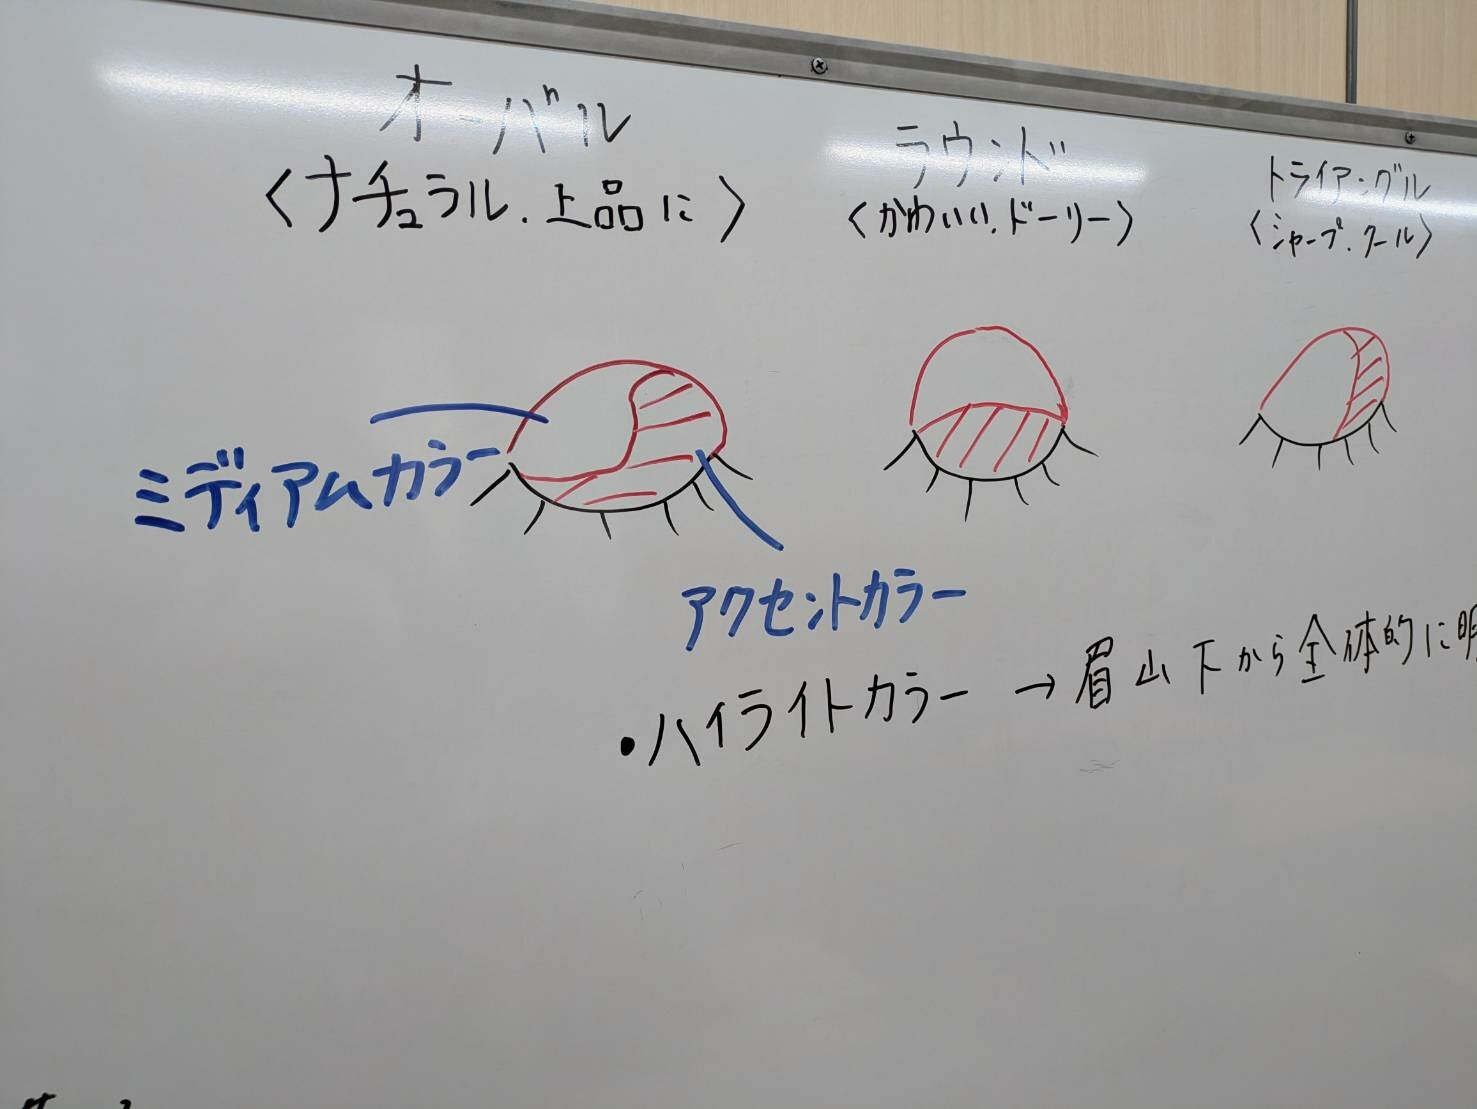 オーバル
〈ナチュラル.上品に〉
ラウンド
〈かわいい.ドーリー〉
トライアングル
〈シャープ.クール〉
ミディアムカラー
アクセントカラー
・ハイライトカラー → 眉山下から全体的に明